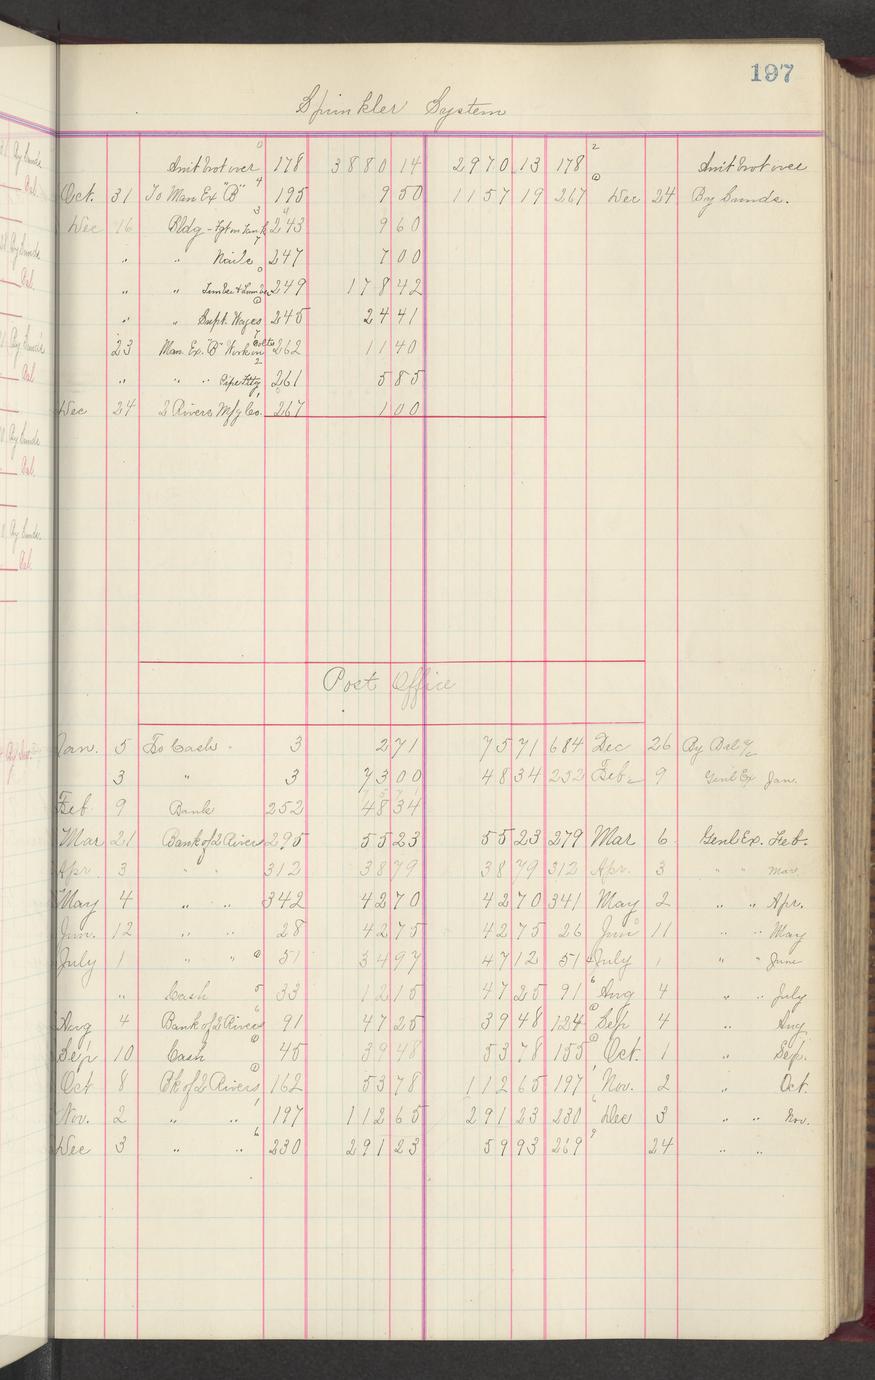 197
Sprinkler System
Amt brot over 178 3880 14 2970 13 178 Amt brot over
Oct. 31 To Man Ex "B" 195 9 50 1157 19 267 Dec 24 By Sunds.
Dec 16 Bldg - Fgt on Tank 243 9 60
" " Nails 247 7 00
" " Timber & Lumber 249 178 42
" " Supt. Wages 245 24 41
23 Man. Ex. "B" Work on 262 11 40
" " " Pipe Fttg 261 5 85
Dec 24 2 Rivers Mfg Co. 267 1 00
Post Office
Jan. 5 To Cash 3 2 71 75 71 684 Dec 26 By Bal
3 " 3 73 00 48 34 252 Feb 9 Genl Ex Jan.
Feb 9 Bank 252 48 34
Mar 21 Bank of 2 Rivers 295 55 23 55 23 279 Mar 6 Genl Ex. Feb.
Apr. 3 " " 312 38 79 38 79 312 Apr. 3 " " Mar.
May 4 " " 342 42 70 42 70 341 May 2 " " Apr.
Jun. 12 " " 28 42 75 42 75 26 Jun 11 " " May
July 1 " " 51 34 97 47 12 51 July 1 " " June
" Cash 33 12 15 47 25 91 Aug 4 " " July
Aug 4 Bank of 2 Rivers 91 47 25 39 48 124 Sep 4 " Aug
Sep 10 Cash 45 39 48 53 78 155 Oct. 1 " Sep.
Oct 8 Bk of 2 Rivers 162 53 78 112 65 197 Nov. 2 " Oct.
Nov. 2 " " 197 112 65 291 23 230 Dec 3 " " Nov.
Dec 3 " " 230 291 23 59 93 269 24 " "